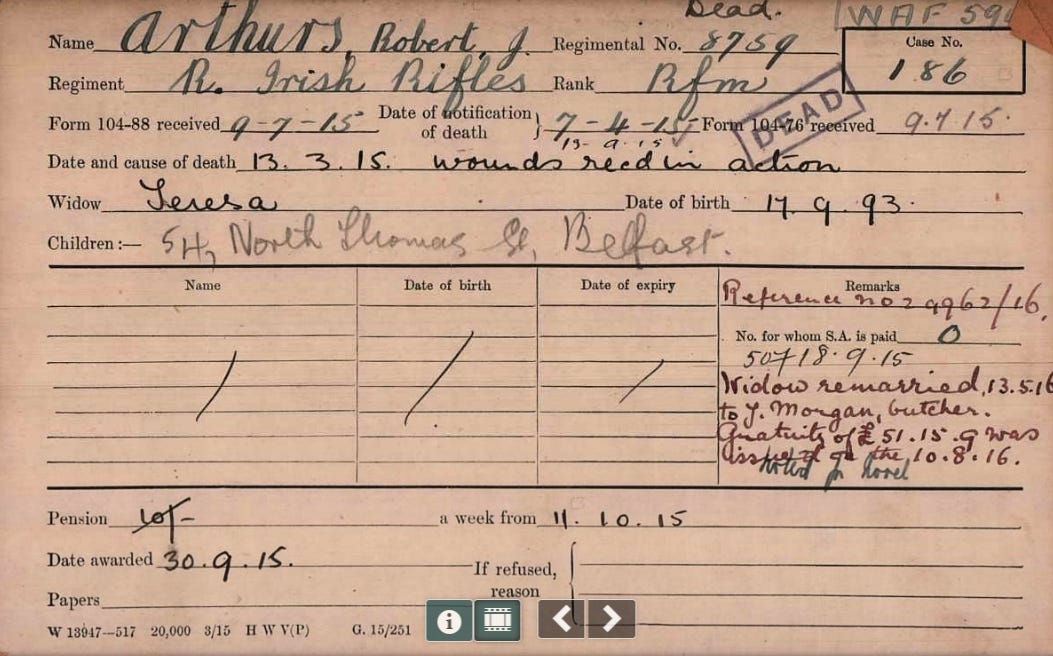 Dead. WAF 59
Name Arthurs, Robert J. Regimental No. 8759 Case No.
Regiment R. Irish Rifles Rank Rfm 186
DEAD
Form 104-88 received 9-7-15 Date of notification of death } 7-4-15 Form 104-76 received 9.7.15.
13-9-15
Date and cause of death 13.3.15. wounds recd in action
Widow Teresa Date of birth 17.9.93.
Children :— 54, North Thomas St, Belfast.
Name Date of birth Date of expiry Remarks
Reference no 29962/16.
No. for whom S.A. is paid 0
18.9.15
Widow remarried, 13.5.16
to J. Morgan, butcher.
Gratuity of £51.15.9 was
issued on the 10.8.16.
Noted
Pension 10/- a week from 11.10.15
Date awarded 30.9.15. If refused, reason
Papers
W 13947—517 20,000 3/15 H W V(P) G. 15/251